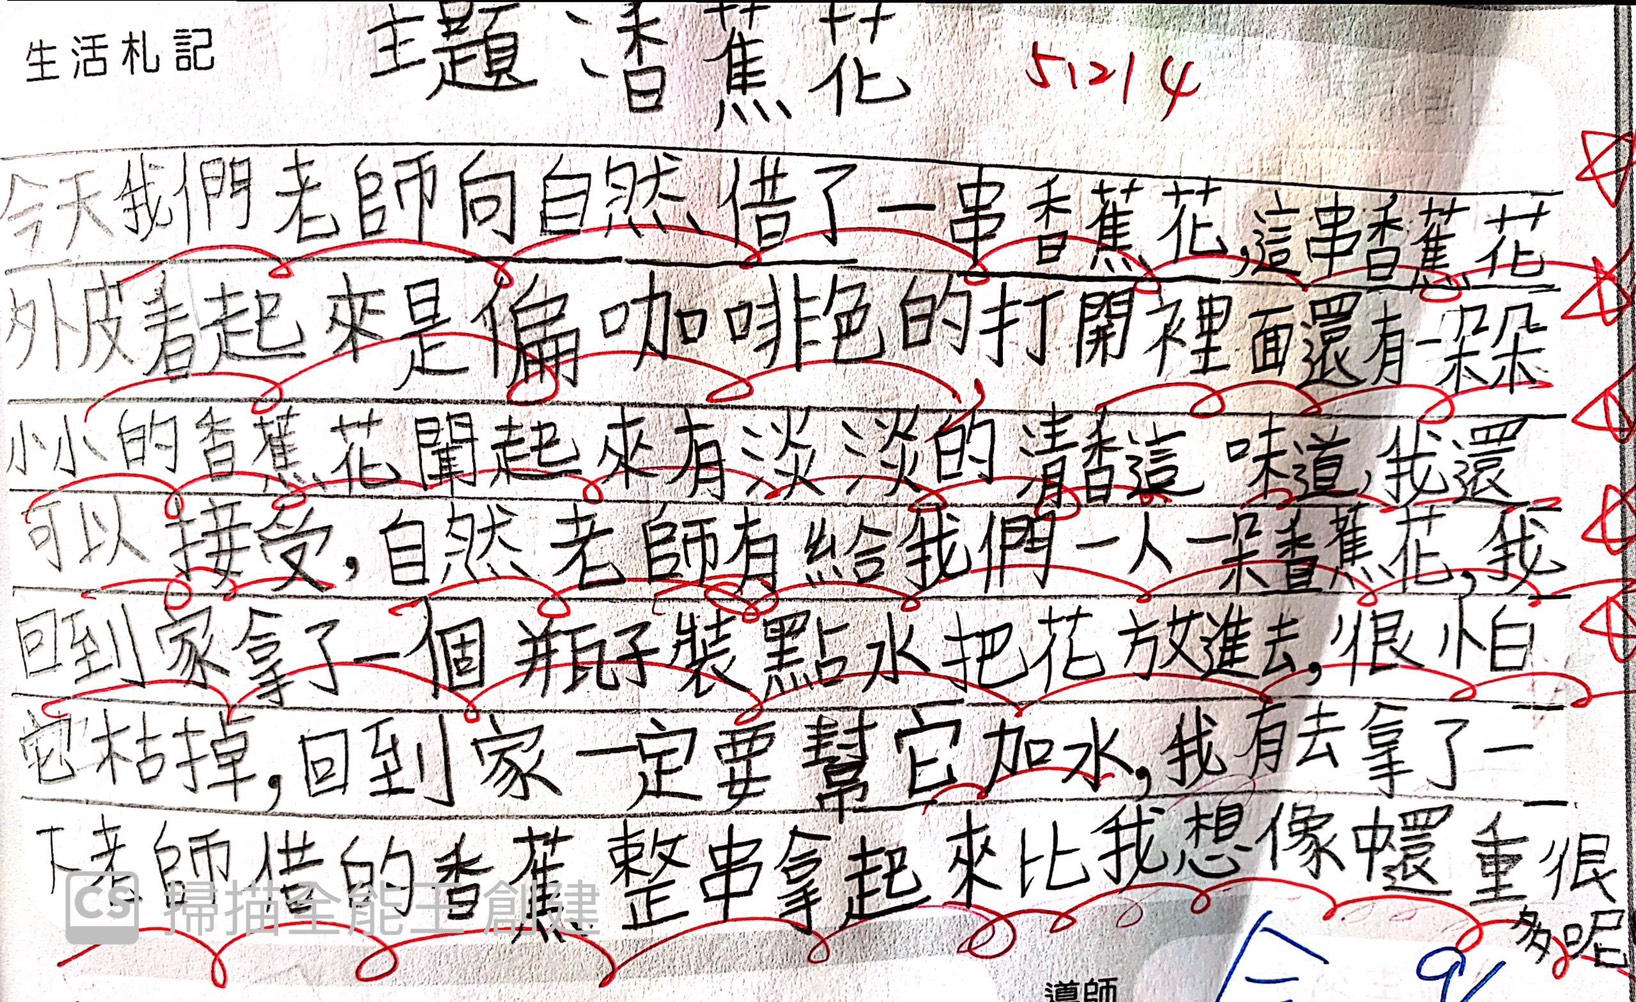 生活札記 主題:香蕉花 51214
今天我們老師向自然借了一串香蕉花,這串香蕉花
外皮看起來是偏咖啡色的打開裡面還有一朵朵
小小的香蕉花聞起來有淡淡的清香這味道,我還
可以接受,自然老師有給我們一人一朵香蕉花,我
回到家拿了一個瓶子裝點水把花放進去,很怕
它枯掉,回到家一定要幫它加水,我有去拿了一
下老師借的香蕉整串拿起來比我想像中還重很
多呢
導師
CS 掃描全能王 創建